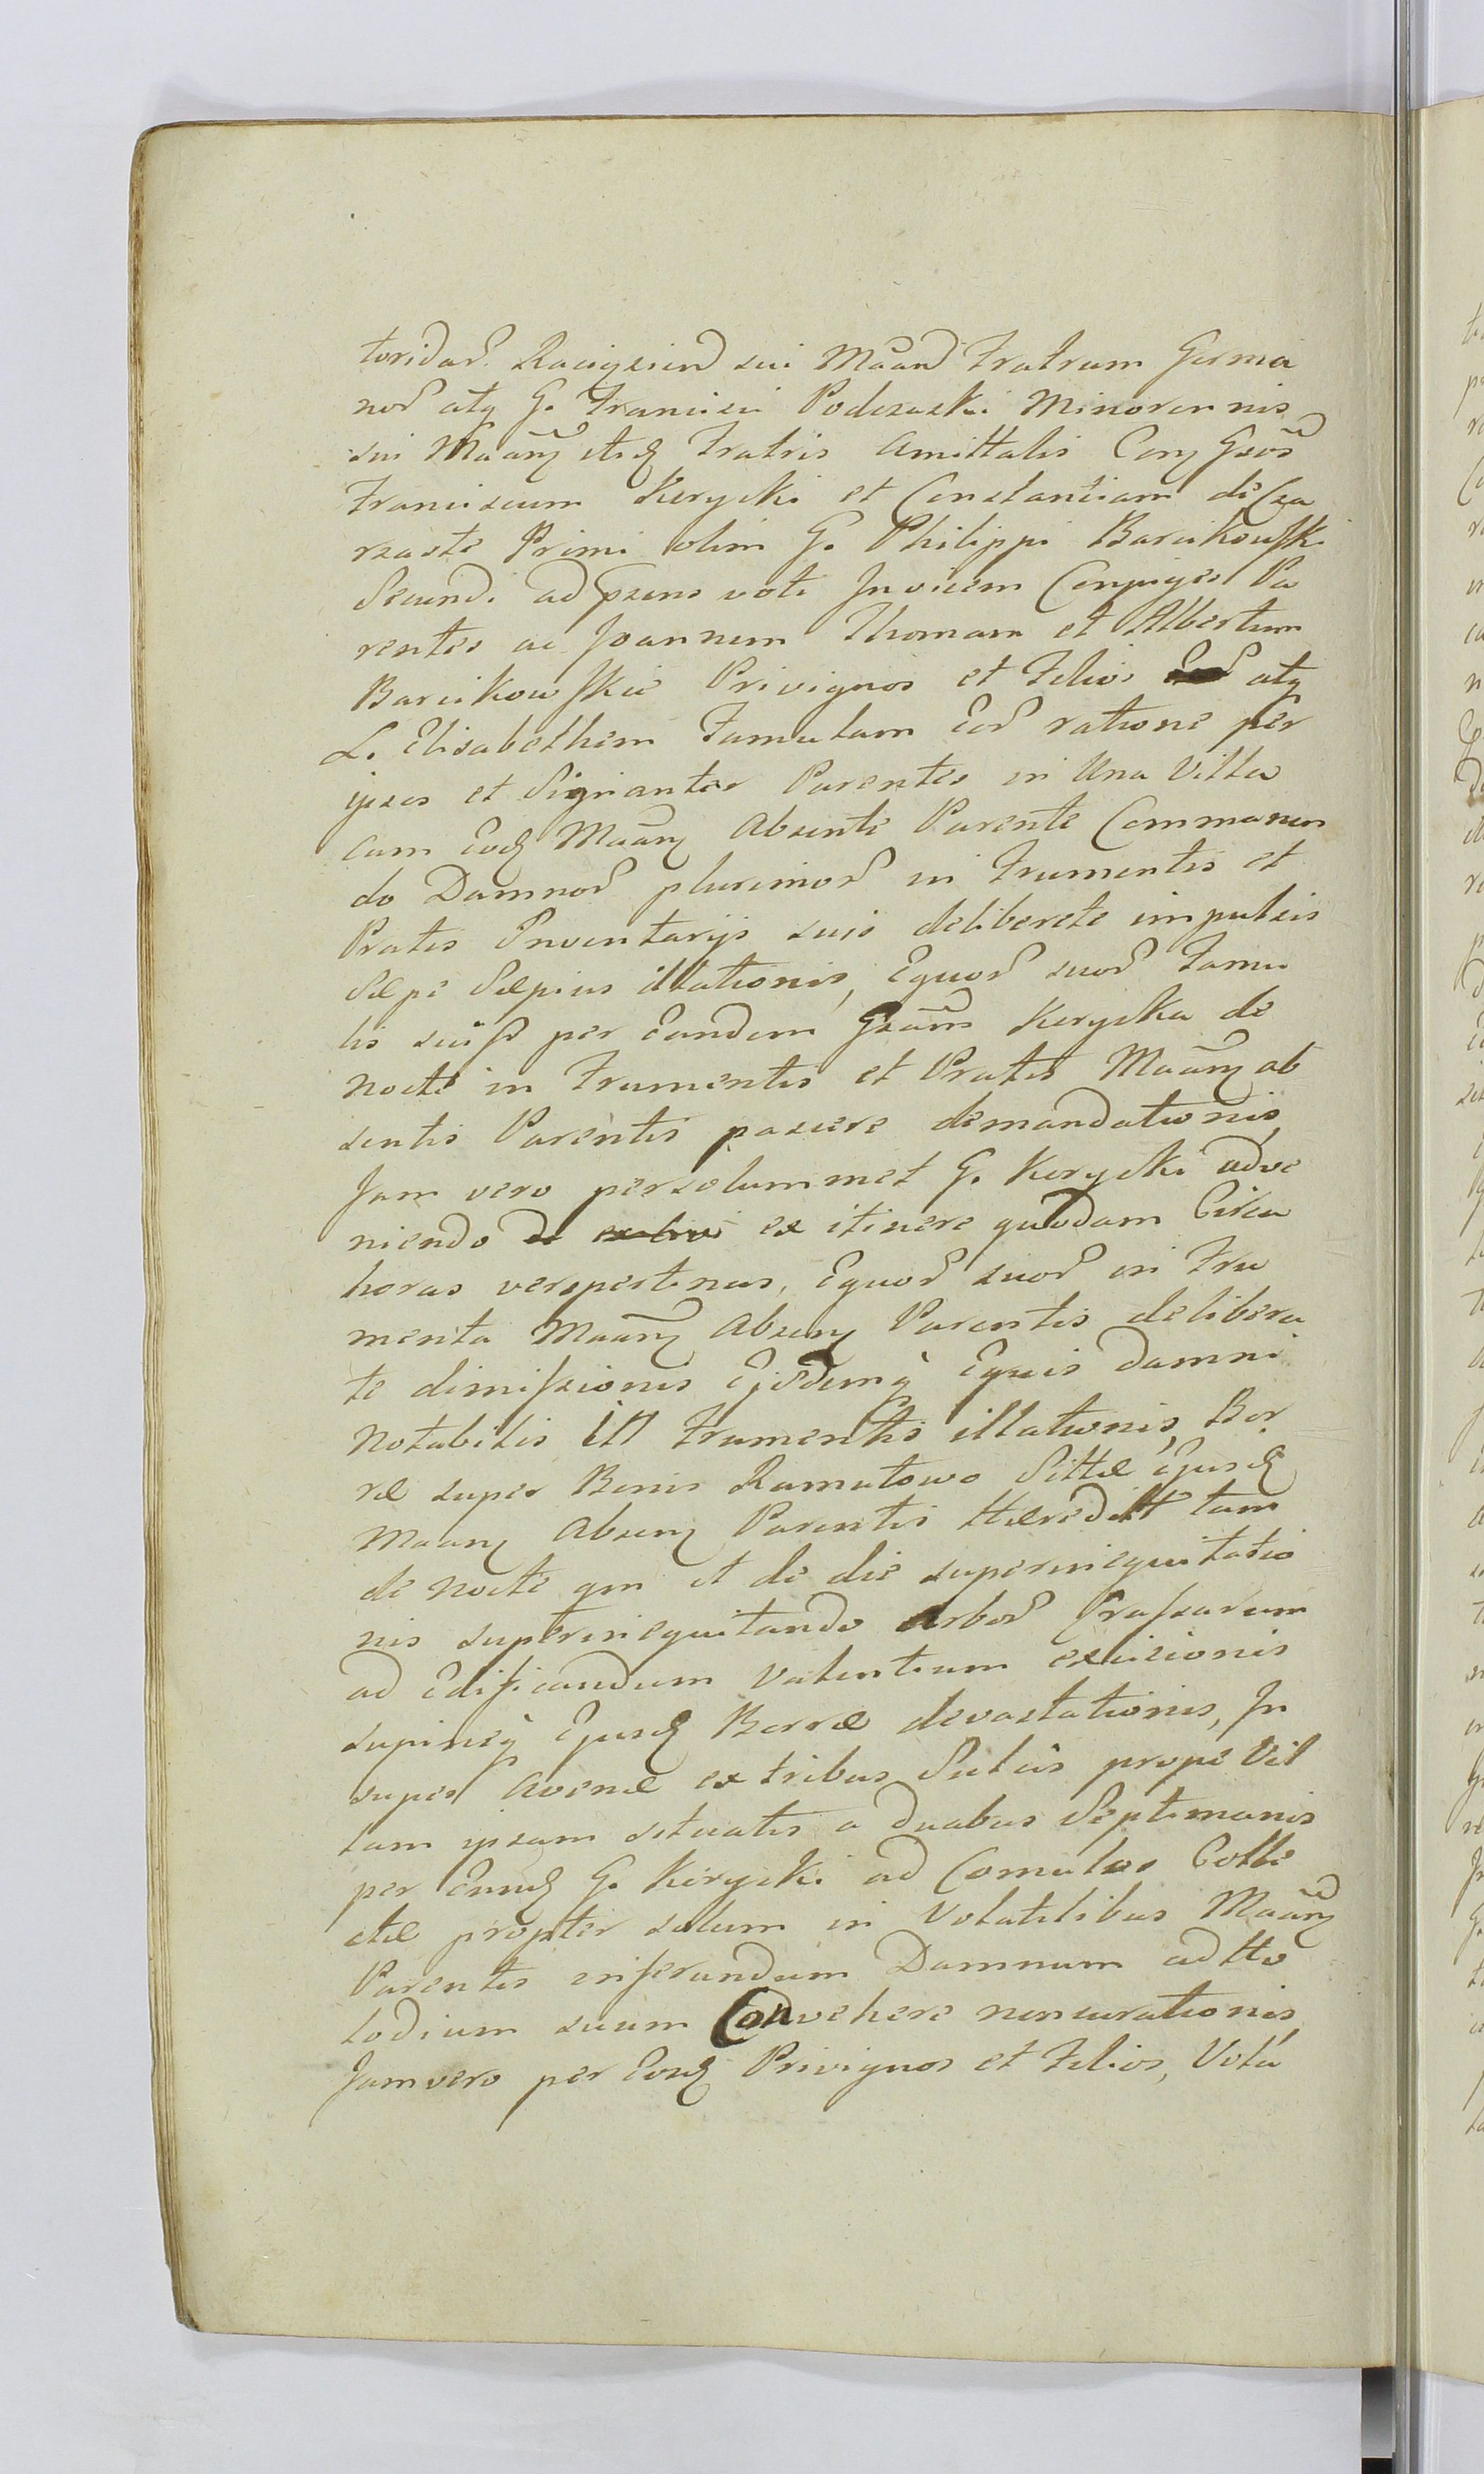 toridar. Raciąziens sui Maand Fratrum Germa
nor atq G. Francisci Podczaski Minorennis
sui Maanz itidq Fratris Amittalis Conz Gsos
Franciscum Kerycki et Constantiam de Cza
rzaste Primi olim G. Philippi Barcikowski
Secundi ad Psens voti Invicem Conjuges Pa
rentes ac Joannem Thomam et Albertum
Barcikowskie Privignos et Filios atq
L. Elisabethem Famulam Eor ratione per
ipsos et Signanter Parentes in Una Villa
cum Eodq Maanz Absente Parente Commanen
do Damnor plurimor in Frumentis et
Pratis Inventarijs suis deliberate impulsis
Sæpe Sæpius illationis, Equor suor Famu
lis suis per Eundem Gsum Kerycki de
nocte in Frumentis et Pratis Maanz ab
sentis Parentis pascere demandationis,
Jam vero persolummet G. Kerycki adve
niendo de ex itinere quodam Circa
horas verspertinas, Equor suor in Fru
menta Maanz Absenz Parentis delibera
te dimissionis Ejsdemq Equis damni
Notabilis in Frumentis illationis, Bor
ræ super Bonis Ramutowo Sittæ Ejusdq
Maanz Absenz Parentis Hæreditt tam
de nocte qm et de die superinequitatio
nis superinequitando Arbor Crassarum
ad Edificandum Valentium excisionis
supineq Ejusdq Borræ devastationis, In
super Avenæ ex tribus Sulcis prope Vil
lam ipsam situatis a duabus Septimanis
per Eundq G. Kerycki ad Comulas Colle
ctæ propter solum in Volatilibus Maanz
Parentis inferendum Damnum ad Ho
lodium suum Convehere noncurationis,
Jamvero per Eosdq Privignos et Filios, Vola